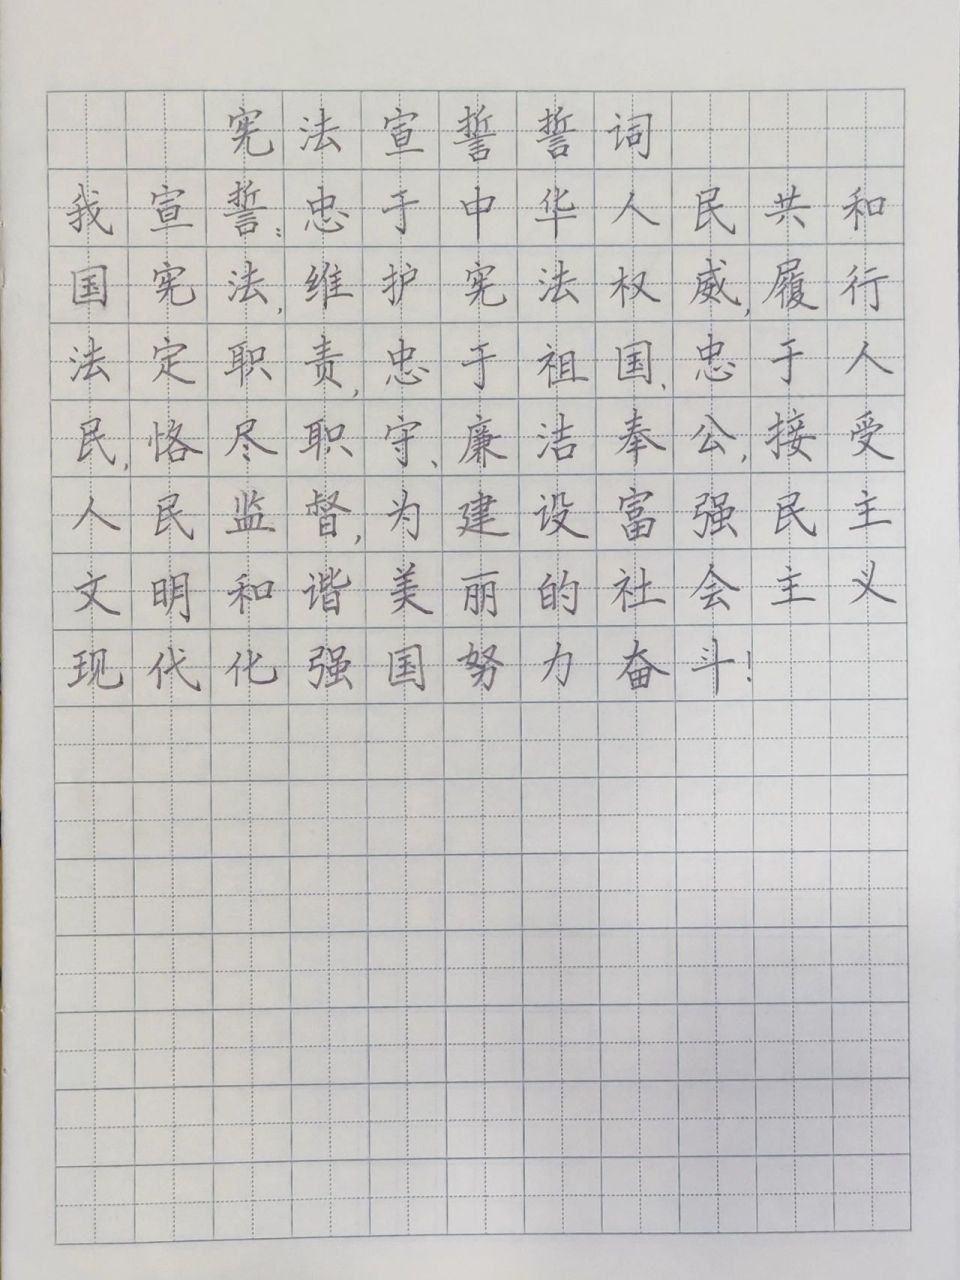 宪法宣誓誓词
我宣誓:忠于中华人民共和
国宪法,维护宪法权威,履行
法定职责,忠于祖国、忠于人
民,恪尽职守、廉洁奉公,接受
人民监督,为建设富强民主
文明和谐美丽的社会主义
现代化强国努力奋斗!